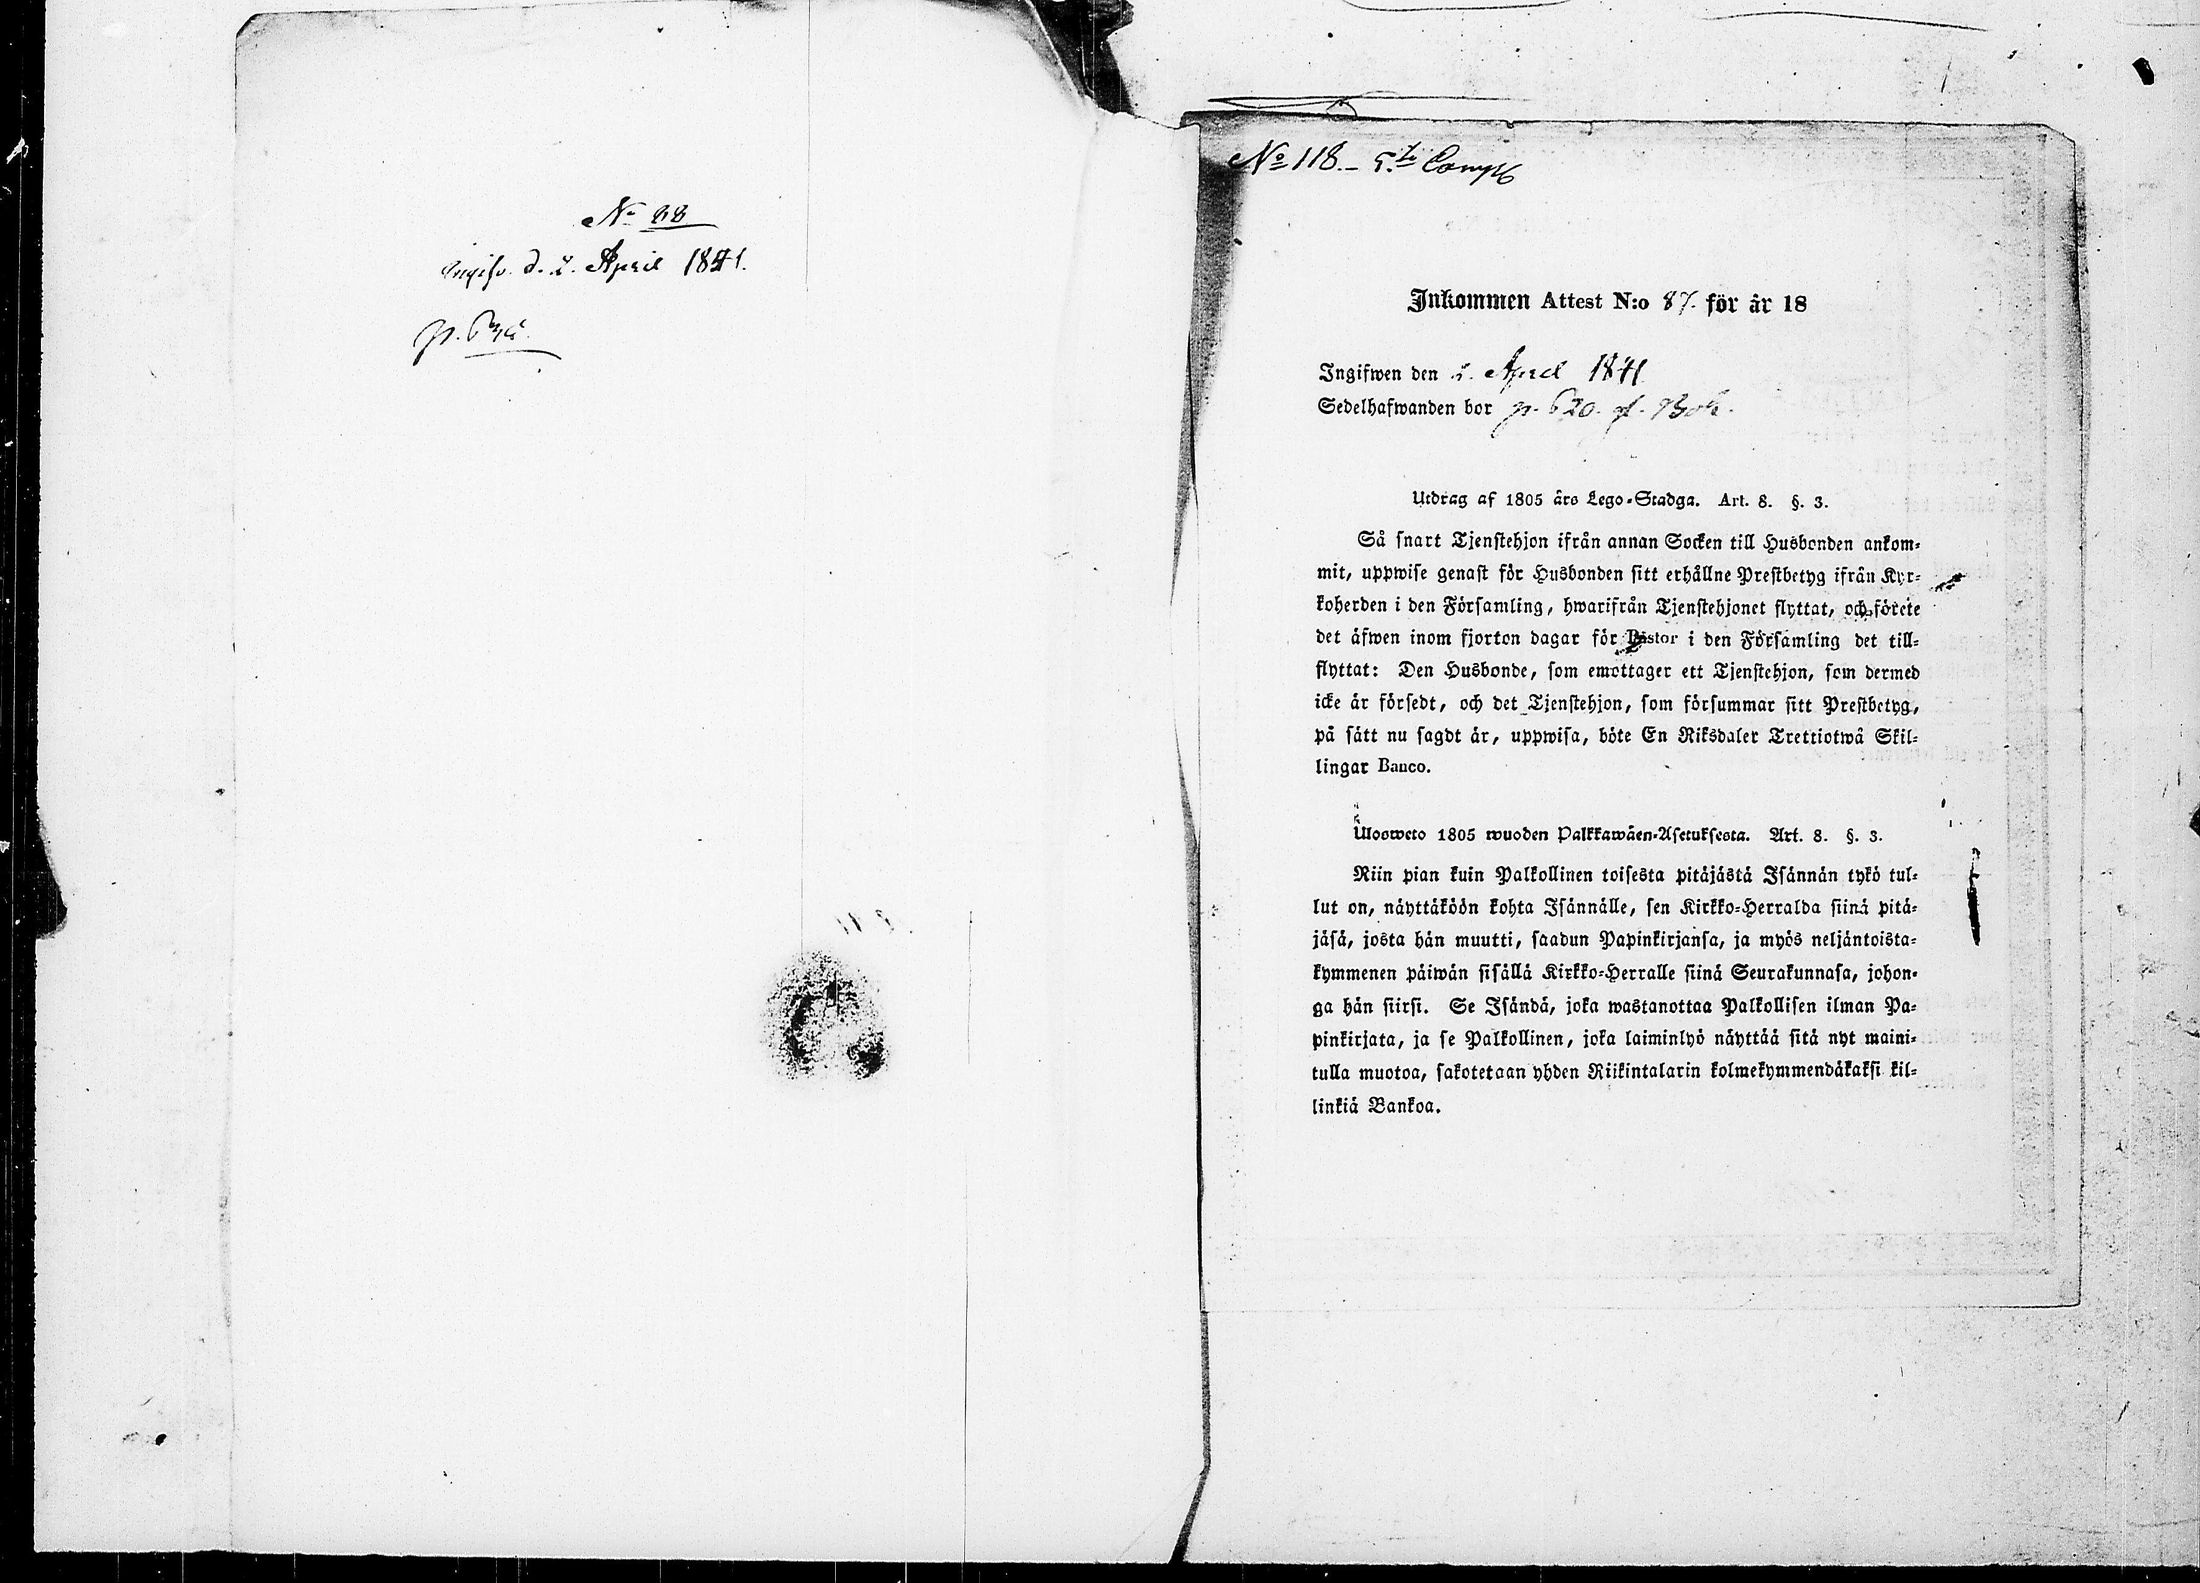 No 88
Ingifv. d. 2. April 1841.
No 118. – 5.te Comp
Inkommen Attest N:o 87. för år 18
Ingifwen den 2. April 1841
Sedelhafwanden bor p. 620.
Utdrag af 1805 års Lego-Stadga. Art. 8. §. 3.
Så snart Tjenstehjon ifrån annan Socken till Husbonden ankom-
mit, uppwise genast för Husbonden sitt erhållne Prestbetyg ifrån Kyr-
koherden i den Församling, hwarifrån Tjenstehjonet flyttat, och förete
det äfwen inom fjorton dagar för Pastor i den Församling det till-
flyttat: Den Husbonde, som emottager ett Tjenstehjon, som dermed
icke är försedt, och det Tjenstehjon, som försummar sitt Prestbetyg,
på sätt nu sagdt är, uppwisa, böte En Riksdaler Trettiotwå Skil-
lingar Banco.
Ulosweto 1805 wuoden Palkkawäen-Asetuksesta. Art. 8. §. 3.
Niin pian kuin Palkollinen toisesta pitäjästä Isännän tykö tul-
lut on, näyttäköön kohta Isännälle, sen Kirkko-Herralda siinä pitä-
jäsä, josta hän muutti, saadun Papinkirjansa, ja myös neljäntoista-
kymmenen päiwän sisällä Kirkko-Herralle siinä Seurakunnasa, johon-
ga hän siirsi. Se Isändä, joka wastanottaa Palkollisen ilman Pa-
pinkirjata, ja se Palkollinen, joka laiminlyö näyttää sitä nyt maini-
tulla muotoa, sakotetaan yhden Riikintalarin kolmekymmendäkaksi kil-
linkiä Bankoa.